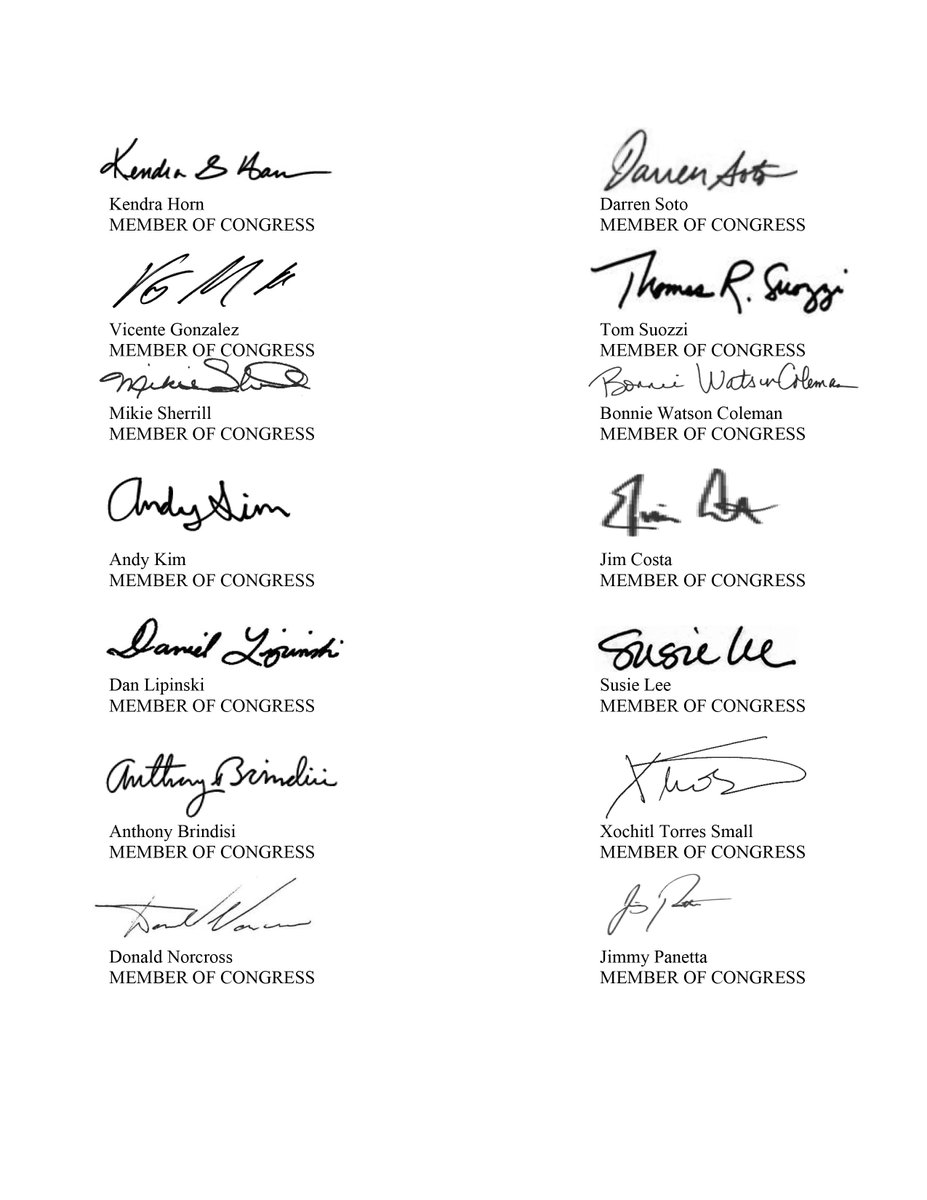 Kendra S Horn
Kendra Horn
MEMBER OF CONGRESS
Darren Soto
Darren Soto
MEMBER OF CONGRESS
Vicente Gonzalez
MEMBER OF CONGRESS
Thomas R. Suozzi
Tom Suozzi
MEMBER OF CONGRESS
Mikie Sherrill
Mikie Sherrill
MEMBER OF CONGRESS
Bonnie Watson Coleman
Bonnie Watson Coleman
MEMBER OF CONGRESS
Andy Kim
Andy Kim
MEMBER OF CONGRESS
Jim Costa
Jim Costa
MEMBER OF CONGRESS
Daniel Lipinski
Dan Lipinski
MEMBER OF CONGRESS
Susie Lee
Susie Lee
MEMBER OF CONGRESS
Anthony Brindisi
Anthony Brindisi
MEMBER OF CONGRESS
Xochitl Torres Small
MEMBER OF CONGRESS
Donald Norcross
Donald Norcross
MEMBER OF CONGRESS
Jimmy Panetta
MEMBER OF CONGRESS